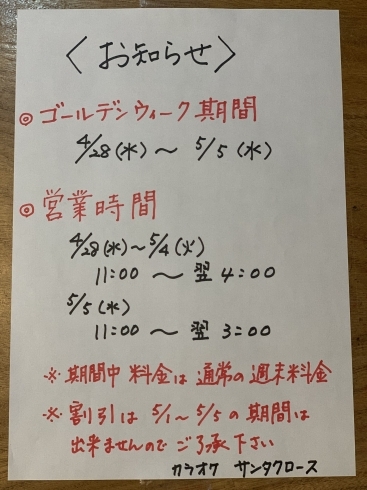 〈お知らせ〉
◎ ゴールデンウィーク期間
4/28(水)〜 5/5(水)
◎ 営業時間
4/28(水)〜5/4(火)
11:00 〜 翌 4:00
5/5(水)
11:00 〜 翌 3:00
※ 期間中 料金は 通常の週末料金
※ 割引は 5/1〜5/5 の期間は
出来ませんので ご了承下さい
カラオケ サンタクロース